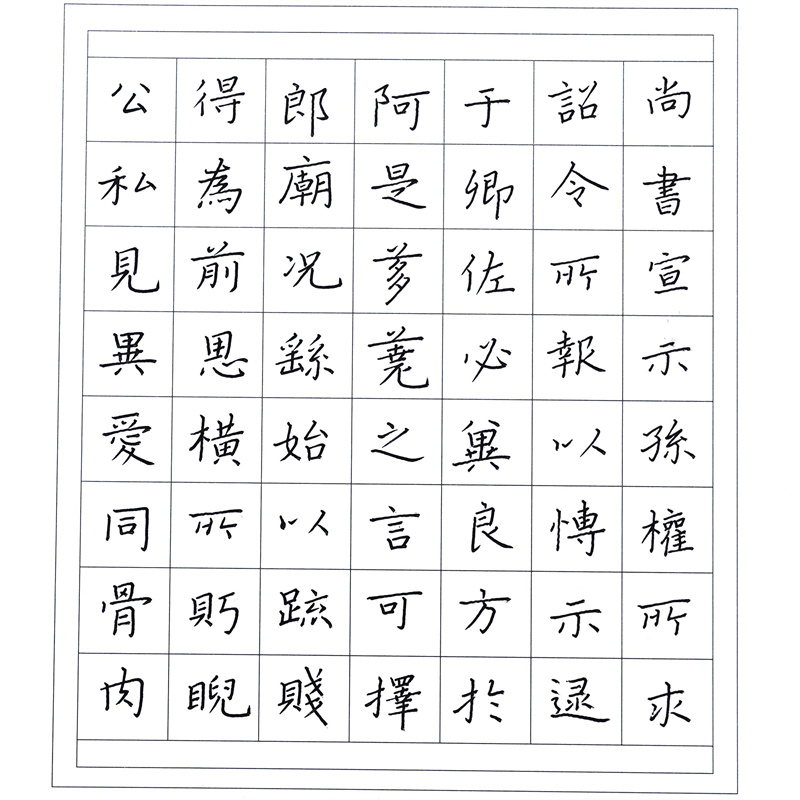 尚書宣示孫權所求
詔令所報以博示逮
于卿佐必冀良方於
阿是芻蕘之言可擇
郎廟况繇始以疏賤
得為前恩橫所眄睨
公私見異愛同骨肉